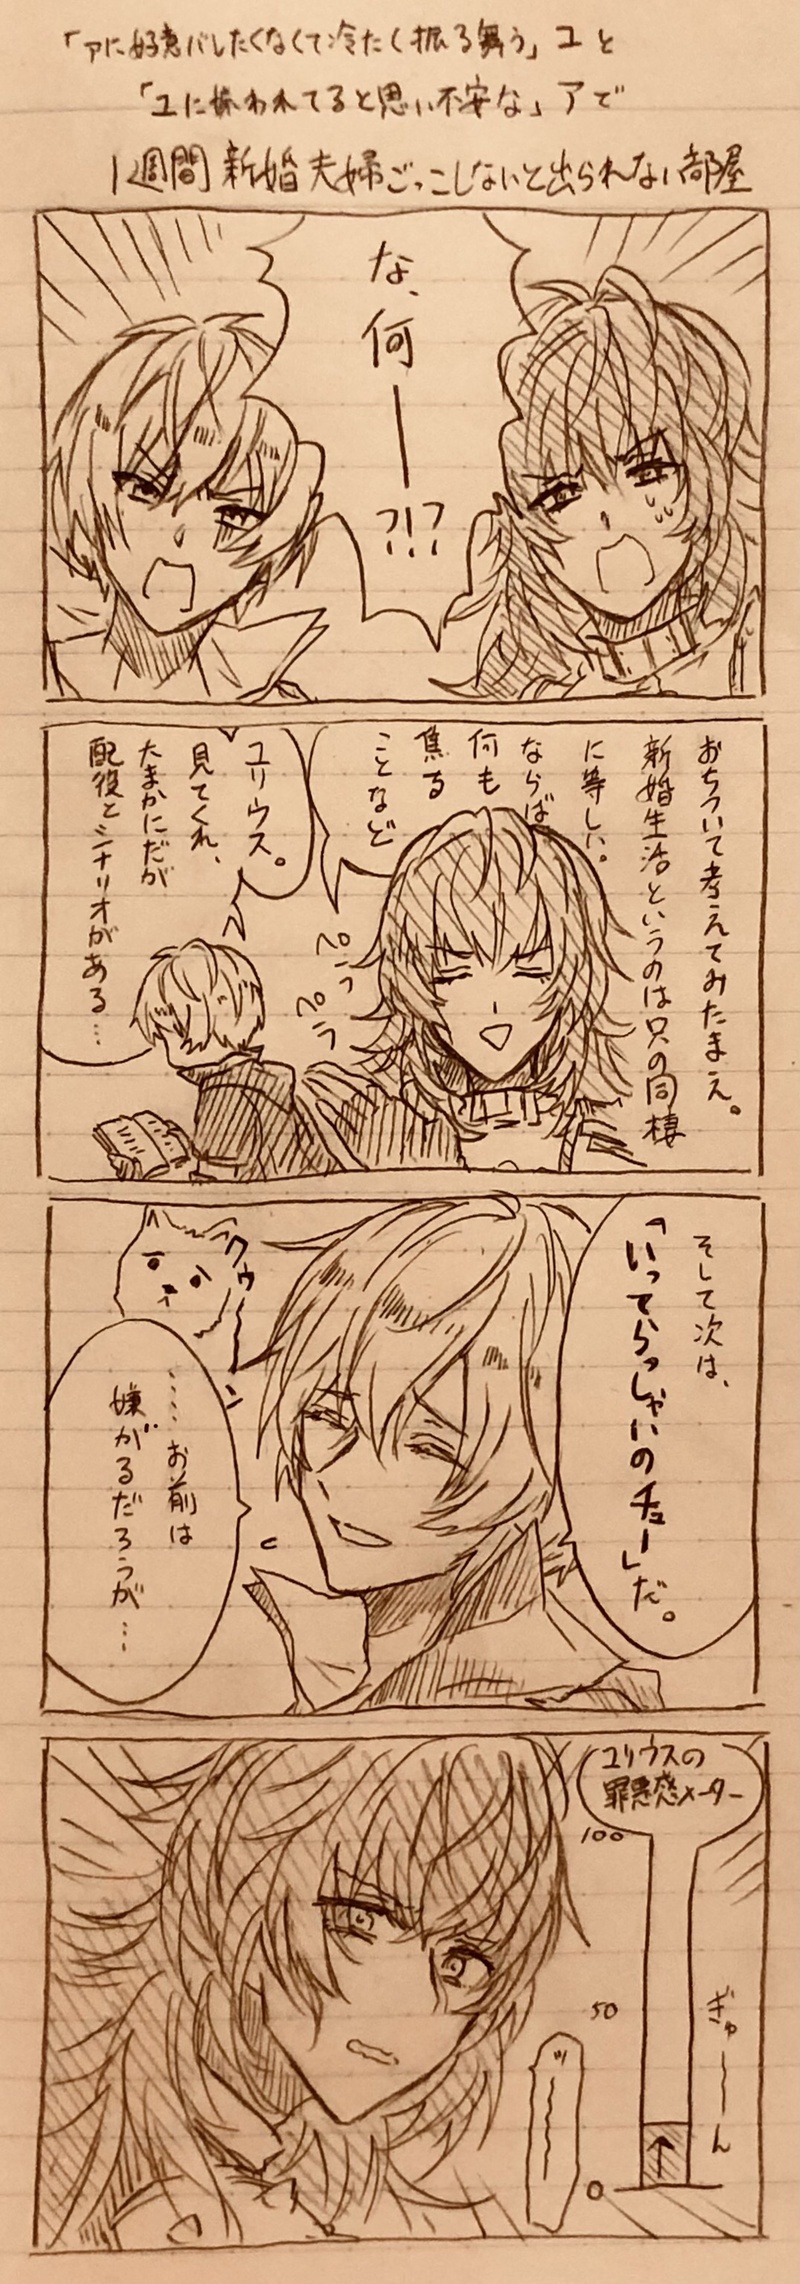 「アに好意バレしたくなくて冷たく振る舞う」ユと
「ユに嫌われてると思い不安な」アで
1週間新婚夫婦ごっこしないと出られない部屋
な、何ー?!?
おちついて考えてみたまえ。
新婚生活というのは只の同棲
に等しい。
ならば
何も
焦る
ことなど
ペラ
ペラ
ユリウス。
見てくれ、
たまかにだが
配役とシナリオがある…
そして次は、
「いってらっしゃいのチュー」だ。
クゥーーン
……お前は
嫌がるだろうが…
ユリウスの
罪悪感メーター
100
50
0
ぎゅーーん
ッーーー